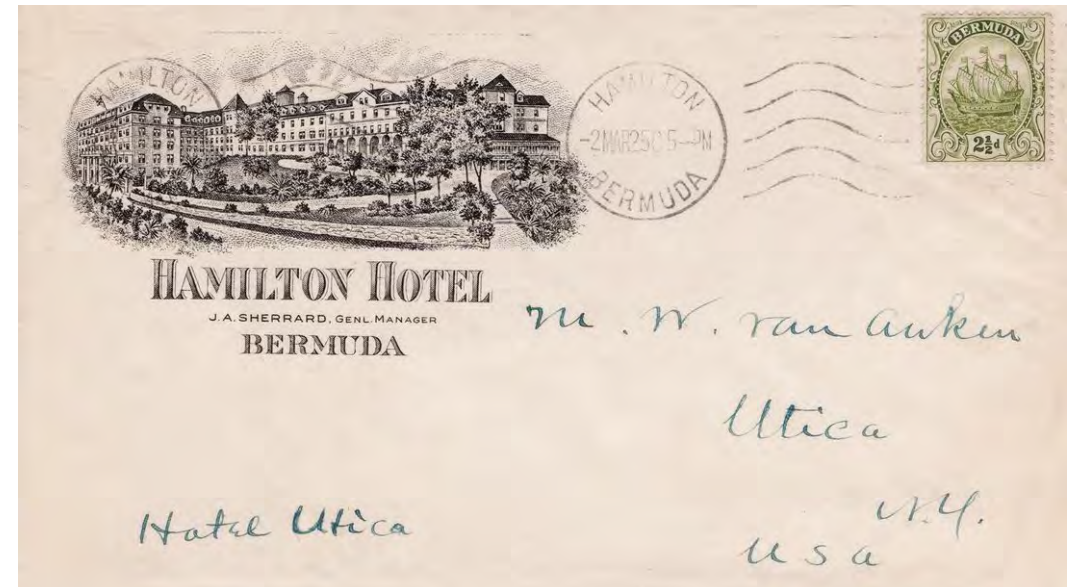 HAMILTON
HAMILTON
-2MAR25C5-PM
BERMUDA
BERMUDA
2½d
HAMILTON HOTEL
J.A. SHERRARD, GENL. MANAGER
BERMUDA
M. W. van Auken
Utica
N.Y.
Hotel Utica
USA